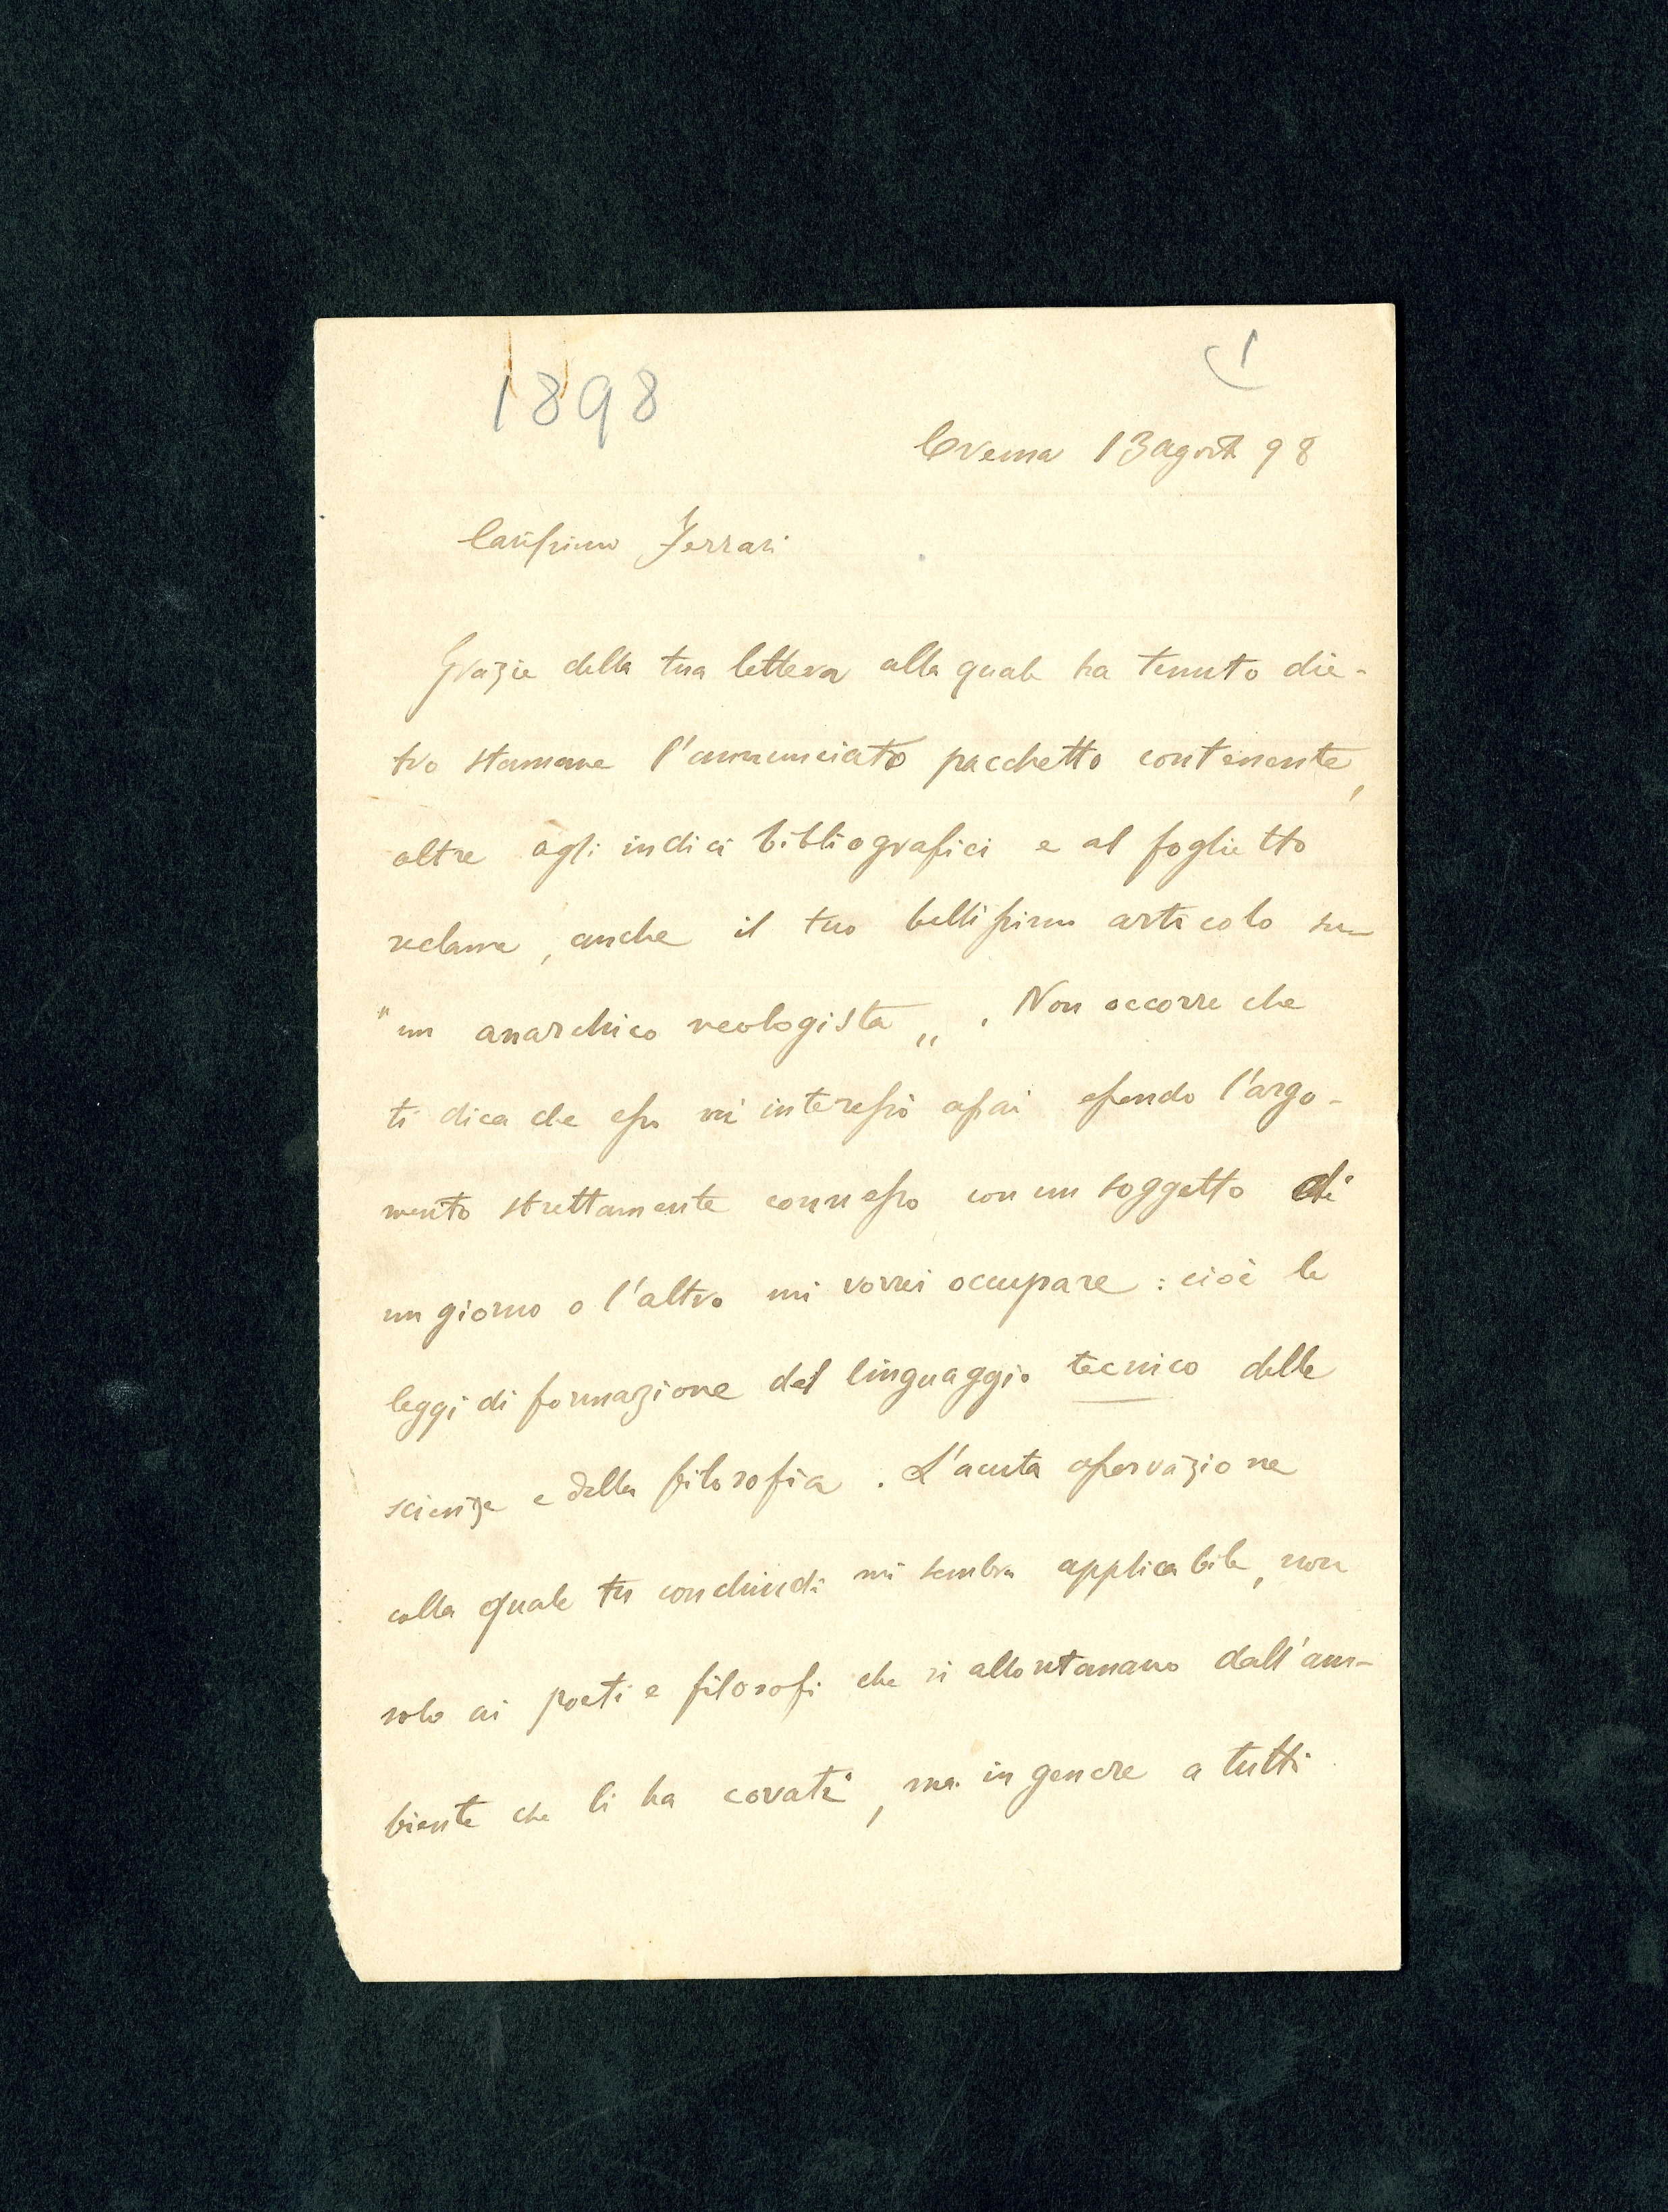 1898
1
Crema 13 agosto 98
Carissimo Ferrari
Grazie della tua lettera alla quale ha tenuto die-
tro stamane l'annunciato pacchetto contenente,
oltre agli indici bibliografici e al foglietto
reclame, anche il tuo bellissimo articolo su
"un anarchico neologista„. Non occorre che
ti dica che esso mi interessò assai essendo l'argo-
mento strettamente connesso con un soggetto di
un giorno o l'altro mi vorrei occupare: cioè le
leggi di formazione del linguaggio tecnico delle
scienze e della filosofia. L'acuta osservazione
colla quale tu conchiudi mi sembra applicabile, non
solo ai poeti e filosofi che si allontanano dall'am-
biente che li ha covati, ma in genere a tutti